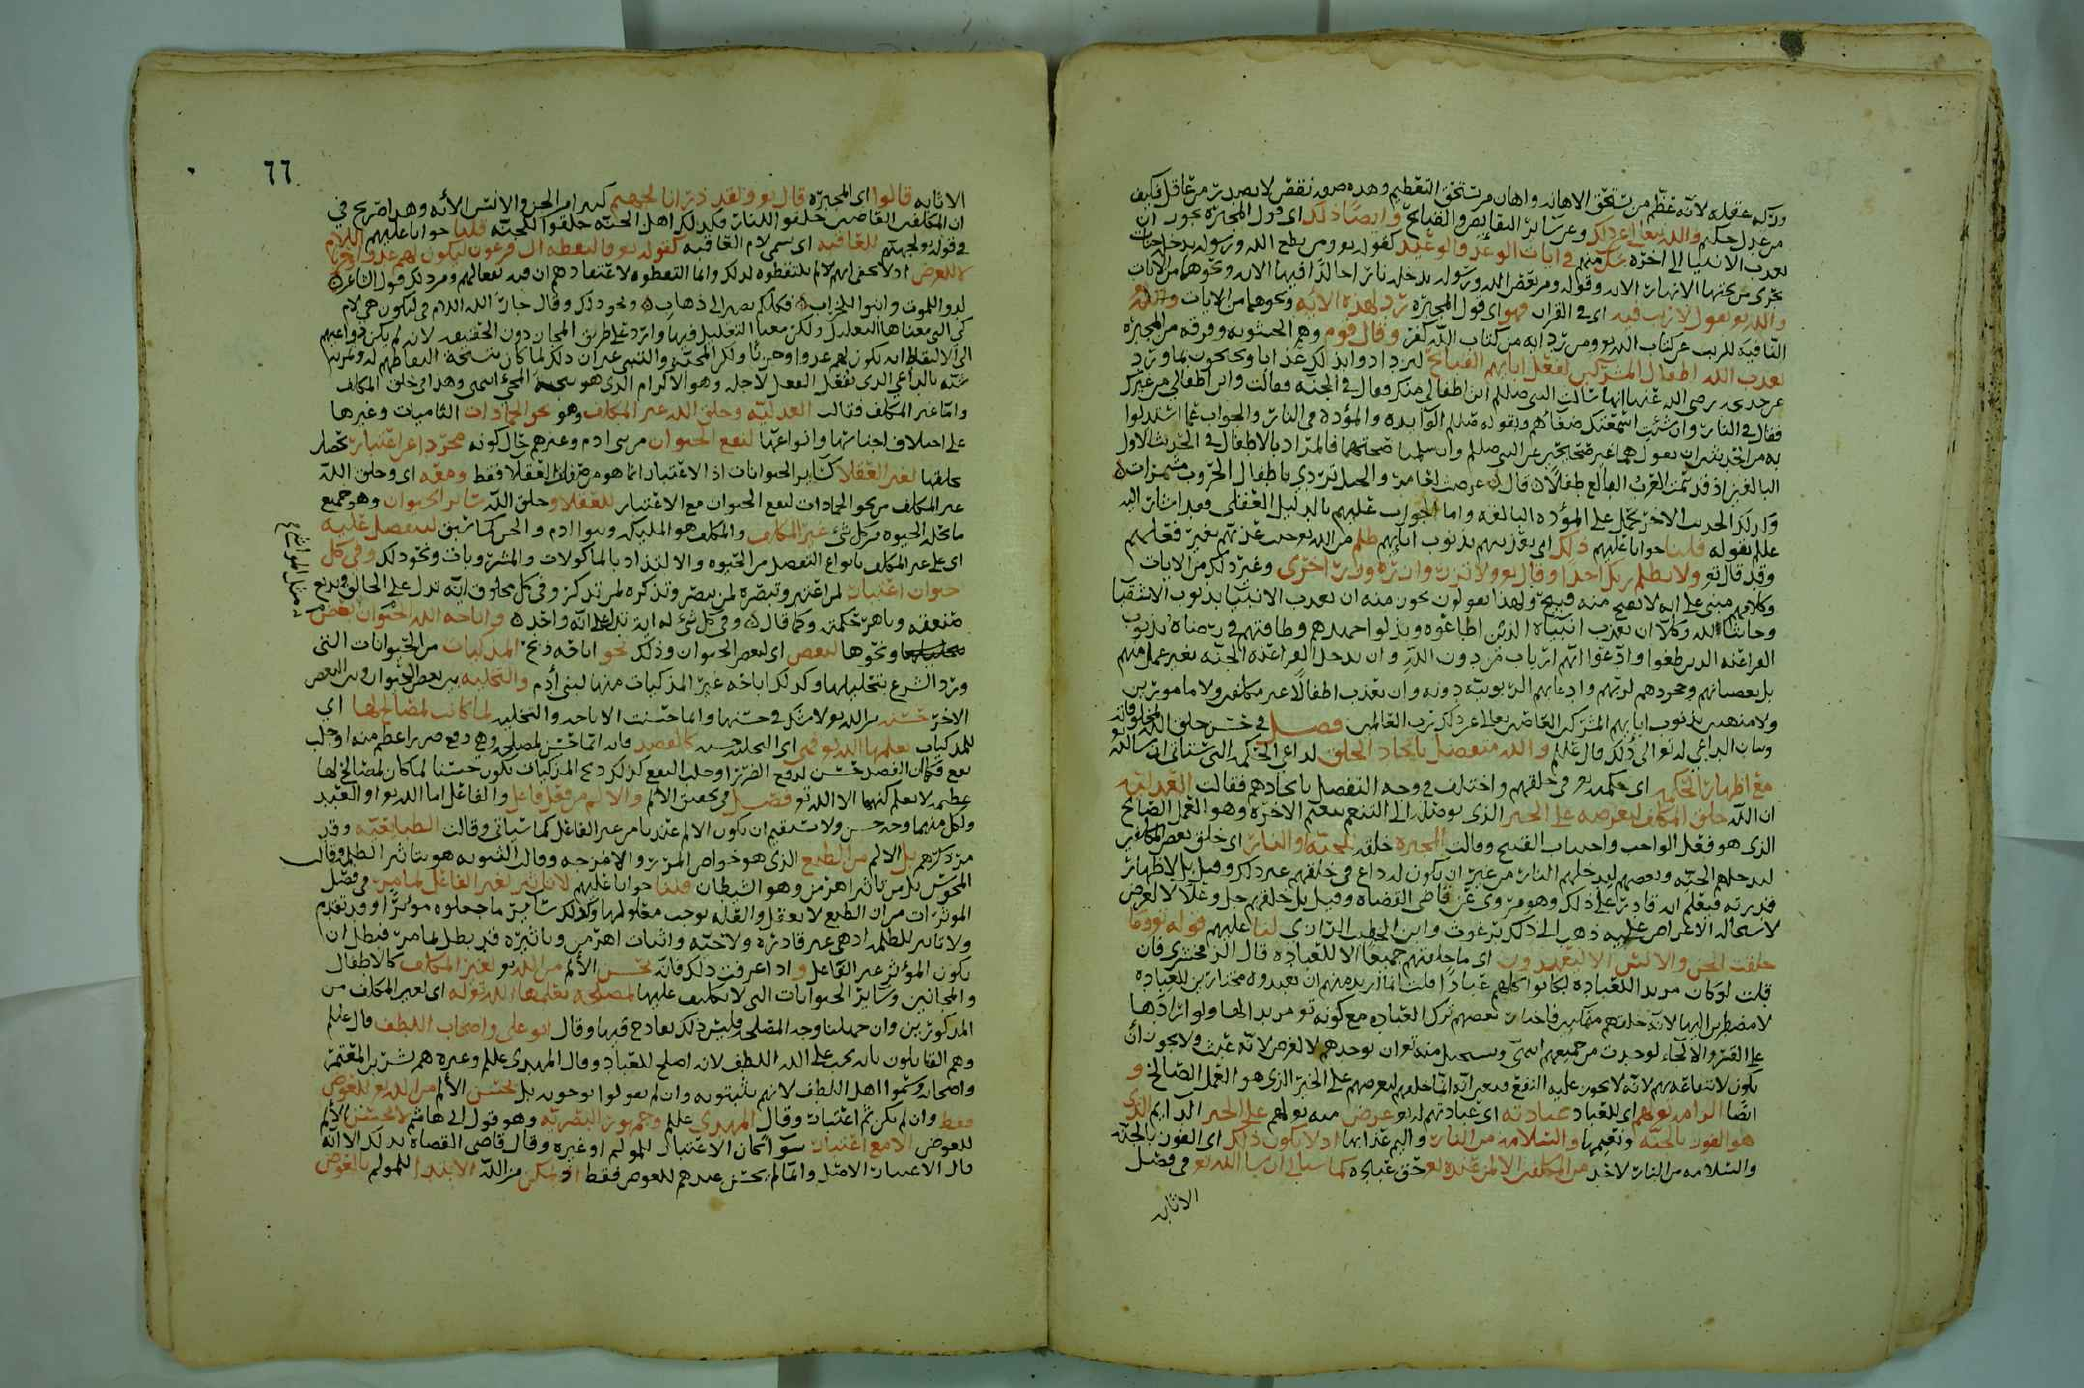 وتركه عقله لأنه عظم من يستحق الاهانه واهان من يستحق التعظيم وهذه صفه نقص لا يصدر من عاقل فكيف
من عدل حكيم والله يتعالى عن ذلك وعن سائر النقائص والقبائح وايضا ذلك اى قول المجبرة بجواز ان
يعذب الانبيا الى اخره شك منهم فى ايات الوعد والوعيد كقوله تعو ومن يطع الله ورسوله يدخله جنات
تجرى من تحتها الانهار الايه وقوله ومن يعص الله ورسوله يدخله نارا خالدا فيها الايه ونحوهما من الايات
والله تعو يقول لا ريب فيه اى فى القران فهو اى قول المجبره رد لهذه الايه ونحوها من الايات
النافيه للريب عن كتاب الله تعو ومن رد ايه من كتاب الله كفر وقال قوم وهم الحشويه وفرقه من المجبره
يعذب الله اطفال المشركين لفعل ابائهم القبائح ليزدادوا بذلك عذابا ويحتجون بما ورد
عن خديجه رضى الله عنها انها سالت النبى صللم اين اطفالى منك فقال فى الجنه فقالت واين اطفالى من غيرك
فقال فى النار وان شئت اسمعتك ضغاهم وبقوله صللم الوائده والموؤده فى النار والجواب عما استدلوا
به من الحديثين ان نقول هما غير صحيحين عن النبى صللم وان سلمنا صحتهما فالمراد بالاطفال فى الحديث الاول
البالغين اذ قد سمت العرب البالغ طفلا قال عرضت لعامر والخيل تردى باطفال الحروب مشمرات
وكذلك الحديث الاخر يحمل على الموؤده البالغه واما الجواب عليهم بالدليل العقلى فقد اشار اليه
عللم بقوله قلنا جوابا عليهم ذلك اى تعذيبهم بذنوب ابائهم ظلم من الله تعو حيث عذبهم بغير فعلهم
وقد قال تعو ولا يظلم ربك احدا وقال تعو ولا تزر وازرة وزر اخرى وغير ذلك من الايات
وكلامهم مبنى على انه لا يقبح منه قبيح ولهذا يقولون يجوز منه ان يعذب الانبيا بذنوب الاشقيا
وحاشا لله وكلا ان يعذب انبياه الذين اطاعوه وبذلوا جهدهم وطاقتهم فى رضاه بذنوب
الفراعنه الذين طغوا وادعوا انهم ارباب من دون الله وان يدخل الفراعنه الجنه بغير عمل منهم
بل بعصيانهم وجحودهم لربهم وادعائهم الربوبيه دونه وان يعذب اطفالا غير مكلفين ولا مامورين
ولا منهيين بذنوب ابائهم المشركين العاصين تعالى عن ذلك رب العالمين فصل فى حسن خلق الله تعو لمخلوقاته
وبيان الداعى له تعو الى ذلك قال عللم والله متفضل بايجاد الخلق لداعى الحكمه التى ستاتى ان شا الله
مع اظهار الحكمه اى حكمته تعو فى خلقهم واختلف فى وجه التفضل بايجادهم فقالت العدليه
ان الله خلق المكلف ليعرضه على الخير الذى يوصله الى التنعم بنعيم الاخره وهو العمل الصالح
الذى هو فعل الواجب واجتناب القبيح وقالت المجبره خلقه للجنه او النار اى خلق بعض المكلفين
ليدخلهم الجنه وبعضهم ليدخلهم النار من غير ان يكون له داع فى خلقهم غير ذلك وقيل بل لاظهار
قدرته فيعلم انه قادر على ذلك وهو مروى عن قاضى القضاه وقيل بل خلقهم جل وعلا لا لغرض
لاستحاله الاغراض عليه ذهب الى ذلك برغوث وابن الخطيب الرازى لنا عليهم قوله تعو وما
خلقت الجن والانس الا ليعبدون اى ما خلقتهم جميعا الا للعباده قال الزمخشرى فان
قلت لو كان مريدا للعباده لكانوا كلهم عبادا قلت انما اريد منهم ان يعبدوه مختارين للعباده
لا مضطرين اليها لانه خلقهم ممكنين فاختار بعضهم ترك العباده مع كونه تعو مريدا لها ولو ارادها
على القسر والالجاء لوجدت من جميعهم انتهى ويستحيل منه تعو ان يوجدهم لا لغرض لانه عبث ولا يجوز ان
يكون لانتفاعه بهم لانه لا يجوز عليه النفع فتعين انه انما خلقهم ليعرضهم على الخير الذى هو العمل الصالح و
ايضا الزامه تعو لهم اى للعباد عبادته اى عبادتهم له تعو عرض منه تعو لهم على الخير الدائم الذى
هو الفوز بالجنه ونعيمها والسلامه من النار واليم عذابها اذ لا يكون ذلك اى الفوز بالجنه
والسلامه من النار لاحد من المكلفين الا لمن عبده تعو حق عبادته كما سياتى ان شا الله تعو فى فصل
الاثابه
٦٦
الاثابه قالوا اى المجبره قال تعو ولقد ذرانا لجهنم كثيرا من الجن والانس الايه وهذا صريح فى
ان المكلفين العاصين خلقوا للنار فكذلك اهل الجنه خلقوا للجنه قلنا جوابا عليهم اللام
فى قوله تعو لجهنم للعاقبه اى تسمى لام العاقبه كقوله تعو فالتقطه ال فرعون ليكون لهم عدوا وحزنا
لا للغرض اذ لا يخفى انهم لم يلتقطوه لذلك وانما التقطوه لاعتقادهم ان فيه نفعا لهم ومن ذلك قول الشاعر
لدوا للموت وابنوا للخراب فكلكم يصير الى ذهاب ونحو ذلك وقال جار الله اللام فى ليكون هى لام
كى التى معناها التعليل ولكن معنا التعليل فيها وارد على طريق المجاز دون الحقيقه لانه لم يكن داعيهم
الى الالتقاط ان يكون لهم عدوا وحزنا ولكن المحبه والتبنى غير ان ذلك لما كان نتيجه التقاطهم له وثمرته
شبه بالداعى الذى يفعل الفعل لاجله وهو الاكرام الذى هو نتيجة المجى انتهى وهذا فى خلق المكلف
واما غير المكلف فقالت العدليه وخلق الله غير المكلف وهو نحو الجمادات الناميات وغيرها
على اختلاف اجناسها وانواعها لنفع الحيوان من بنى ادم وغيرهم حال كونه مجردا عن اعتبار يحصل
بخلقها لغير العقلا كسائر الحيوانات اذ الاعتبار انما هو من العقلا فقط ومعه اى وخلق الله
غير المكلف من نحو الجمادات لنفع الحيوان مع الاعتبار للعقلا وخلق الله سائر الحيوان وهو جميع
ما تحله الحيوه من كل شئ غير المكلف والمكلف هو الملئكه وبنوا ادم والجن كما سبق ليتفضل عليه
اى على غير المكلف بانواع التفضل من الحيوه والالتذاذ بالماكولات والمشروبات ونحو ذلك وفى كل
حيوان اعتبار لمن اعتبر وتبصره لمن يبصر وتذكره لمن تذكر وفى كل مخلوق ايه تدل على الخالق وبديع
صنعته وباهر حكمته وكما قال وفى كل شئ له ايه تدل على انه واحد واباحه الله الحيوان بعض
ونحوها لبعض اى لبعض الحيوان وذلك نحو اباحه ذبح المذكيات من الحيوانات التى
ورد الشرع بتحليلها وكذلك اباحه غير المذكيات منها لبنى ادم والتخليه بين بعض الحيوان وبين البعض
الاخر حسنه من الله تعو لا شك فى حسنها وانما حسنت الاباحه والتخليه لما كانت لمصالح لها اى
للمذكيات يعلمها الله تعو فهى اى التخليه حسنه كالفصد فانه انما حسن لمصلحه وهى دفع ضرر اعظم منه او جلب
نفع فكما ان الفصد حسن لدفع الضرر او جلب النفع كذلك ذبح المذكيات يكون حسنا لما كان لمصالح لها
عظيمه لا يعلم كنهها الا الله تعو فصل فى تحقيق الالم والالم من فعل فاعل والفاعل اما الله تعو او العبد
ولكل منهما وجه حسن ولا يستقيم ان يكون الالم عندنا من غير الفاعل كما سياتى وقالت الطبائعيه وقد
مر ذكرهم بل الالم من الطبع الذى هو خواص المزز والامزجه وقال الثنويه هو بتاثير الظلمه وقال
المجوس بل من تاثير اهرمن وهو الشيطان قلنا جوابا عليهم لا تاثير لغير الفاعل لما مر فى فصل
الموثرات من ان الطبع لا يعقل والعله توجب معلولها وكذلك سائر ما جعلوه موثرا وقد تقدم
ولا تاثير للظلمه اذ هى غير قادره ولا حيه واثبات اهرمن وتاثيره قد بطل بما مر فبطل ان
يكون الموثر غير الفاعل واذا عرفت ذلك فانه يحسن الالم من الله تعو لغير المكلف كالاطفال
والمجانين وسائر الحيوانات التى لا تكليف عليها لمصلحه يعلمها الله تعو له اى لغير المكلف من
المذكورين وان جهلنا وجه المصلحه فليس ذلك بقادح فيها وقال ابو على واصحاب اللطف قال عللم
وهم القائلون بانه يجب على الله اللطف لانه اصلح للعباد وقال المهدى عللم وغيره هم بشر بن المعتمر
واصحابه وسموا اهل اللطف لانهم يثبتونه وان لم يقولوا بوجوبه بل يحسن الالم من الله تعو للعوض
فقط وان لم يكن ثم اعتبار وقال المهدى عللم وجمهور البصريه وهو قول ابى هاشم لا يحسن الالم
للعوض الا مع اعتبار سوآ كان الاعتبار للمولم او غيره وقال قاضى القضاه بذلك الا انه
قال الاعتبار الاصل وانما لم يحسن عندهم للعوض فقط اذ يمكن من الله الابتدا للمولم بالعوض